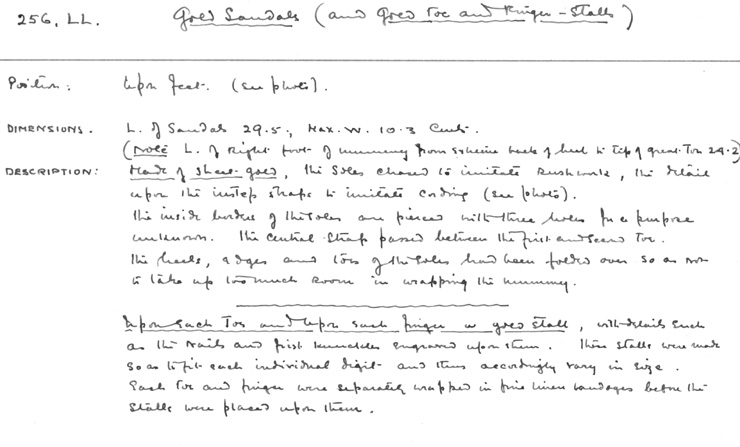 256, LL. Gold Sandals (and Gold Toe and Finger-Stalls)
Position: Upon feet. (see photo).
DIMENSIONS. L. of Sandals 29.5, Max. W. 10.3 Cents.
(Note L. of Right foot of mummy from extreme back of heel to tip of great Toe 24.2)
DESCRIPTION: Made of sheet-gold, the soles chased to imitate rushwork, the detail
upon the instep straps to imitate cording (see photo).
The inside borders of the soles are pierced with three holes for a purpose
unknown. The central strap passed between the first and second toe.
The heels, edges and toes of the soles had been folded over so as not
to take up too much room in wrapping the mummy.
Upon each Toe and upon each finger a gold stall, with details such
as the nails and first knuckles engraved upon them. These stalls were made
so as to fit each individual digit and thus accordingly vary in size.
Each toe and finger were separately wrapped in fine linen bandages before the
stalls were placed upon them.